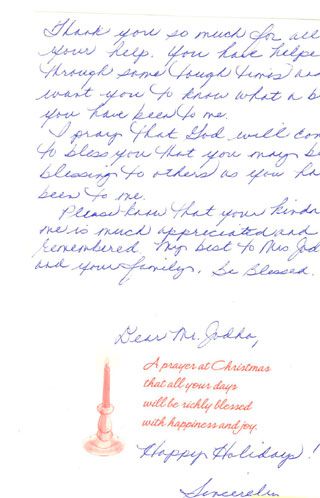 Thank you so much for all
your help. You have helpe
through some tough times an
want you to know what a b
you have been to me.
I pray that God will con
to bless you that you may be
blessing to others as you ha
been to me.
Please know that your kindn
me is much appreciated and
remembered. My best to Mrs. Jod
and your family. Be Blessed.
Dear Mr. Jodha,
A prayer at Christmas
that all your days
will be richly blessed
with happiness and joy.
Happy Holidays!
Sincerely